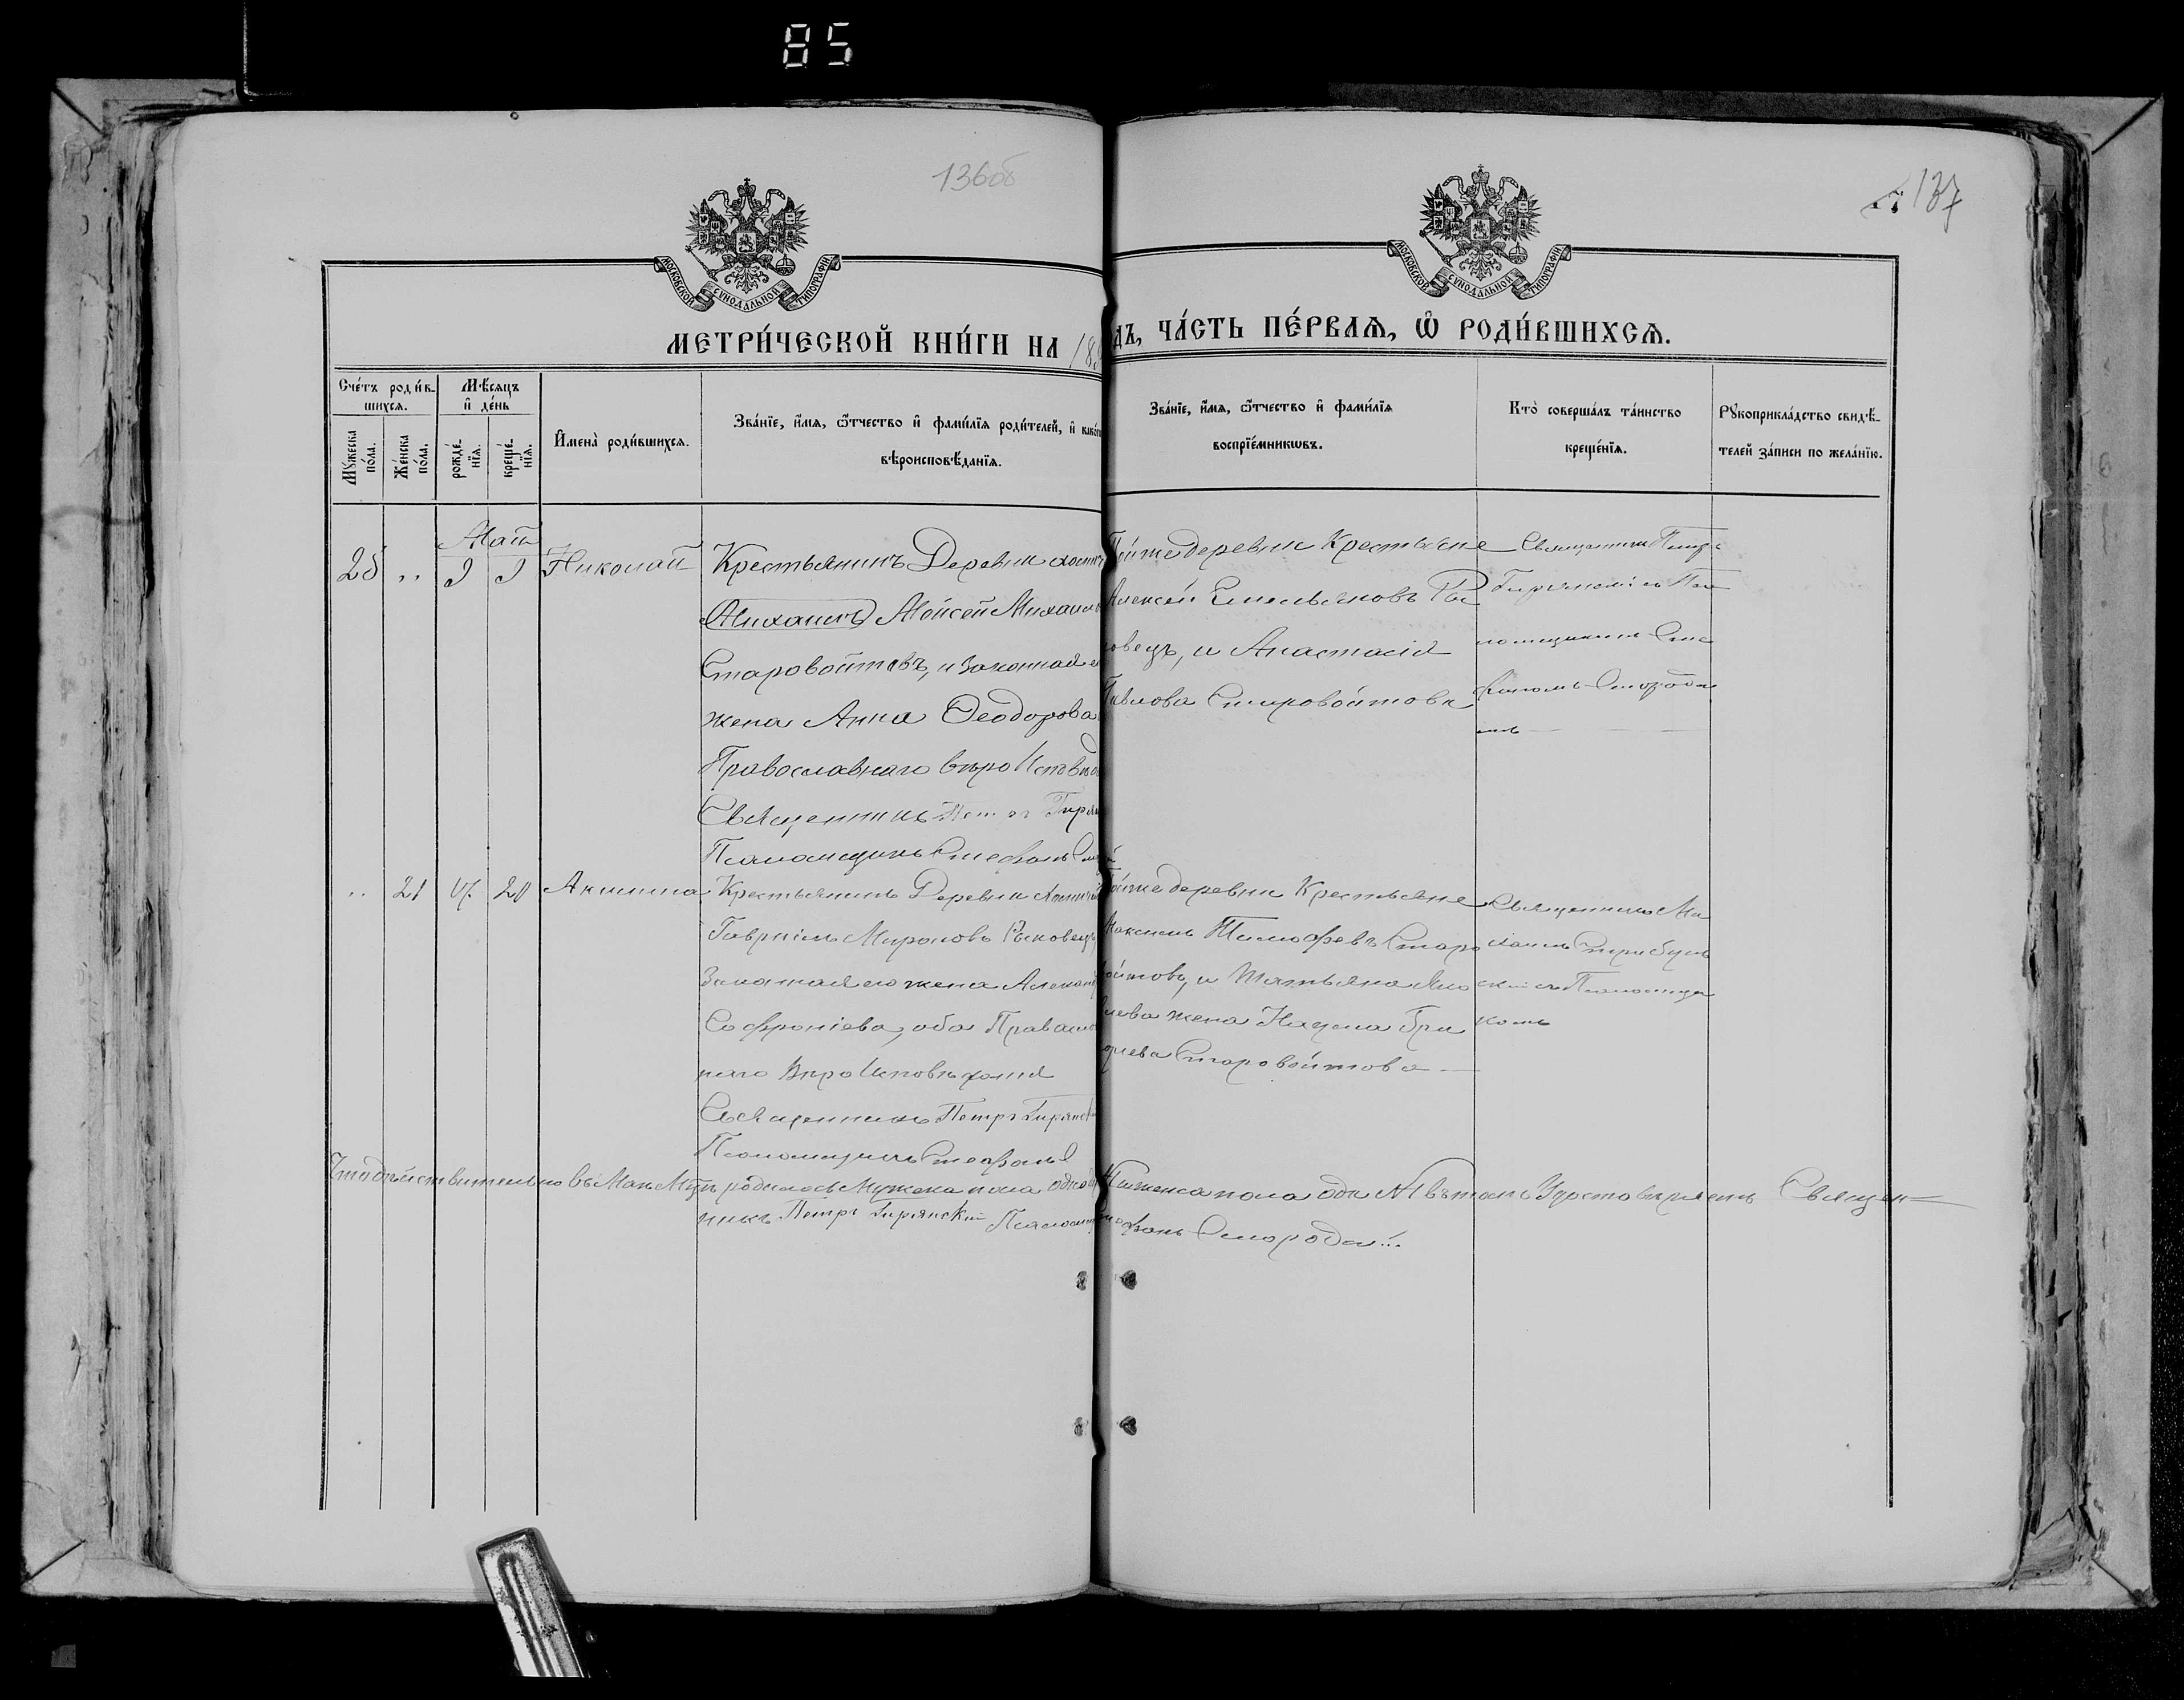 85
136об
137
МОСКОВСКОЙ СУНОДАЛЬНОЙ ТИПОГРАФІИ
МОСКОВСКОЙ СУНОДАЛЬНОЙ ТИПОГРАФІИ
МЕТРИ́ЧЕСКОЙ КНИ́ГИ НА 18
дъ, ЧА́СТЬ ПЕ́РВАѦ, Ѽ РОДИ́ВШИХСѦ.
Сче́тъ роди́в-
шихсѧ.
Мѣ́сѧцъ
и҆ де́нь
Мꙋ́жеска
по́ла.
Же́нска
по́ла.
рожде́-
нїѧ.
креще́-
нїѧ.
И҆мена̀ роди́вшихсѧ.
Зва́нїе, и҆́мѧ, ѻ҆́тчество и҆ фами́лїѧ роди́телей, и҆ како́г
вѣроисповѣ́данїѧ.
Зва́нїе, и҆́мѧ, ѻ҆́тчество и҆ фами́лїѧ
воспрїе́мникѡвъ.
Кто̀ соверша́лъ та́инство
креще́нїѧ.
Рꙋкоприкла́дство свидѣ́-
телей за́писи по жела́нїю.
Май
25 „ 9 9 Николай
Крестьянинъ Деревни
Михаилъ Моисей Михаил
Старовойтовъ, и законная е
жена Анна Ѳеодорова
Православнаго вѣроИсповѣд
Священникъ Петръ Гирян
Псаломщикъ Стефанъ См
Тойже деревни Крестьяне
Алексей Емельяновъ Рас
овецъ, и Анастасія
Павлова Старовойтова
Священникъ Петръ
Гирянскій съ Пса
ломщикомъ Сте
фаномъ Смородс
имъ
„ 21 17 20 Акилина
Крестьянинъ Деревни
Гавріилъ Мироновъ
Законная его жена
Софроніева, оба Правосла
наго ВѣроИсповѣданія
Священникъ Петръ Гирянск
Псаломщикъ Стефанъ
Тойже деревни Крестьяне
Максимъ Тимофеевъ Старо
войтовъ, и Татьяна Яко
влева жена Наума Гри
орьева Старовойтова
Священникъ Ми
хаилъ
скій съ Псаломщи
комъ
Что дѣйствительно въ Маѣ Мцѣ родилось Мужеска пола одно
Женска пола одн въ томъ Удостовѣряемъ Священ-
никъ Петръ Гирянскій Псаломщ
ефанъ Смородс